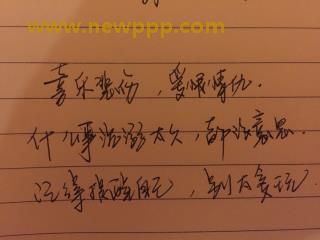 www.newppp.com
喜乐悲伤，爱恨情仇.
什么事说溜太久，都没意思.
记得提醒自己，别太贪玩.